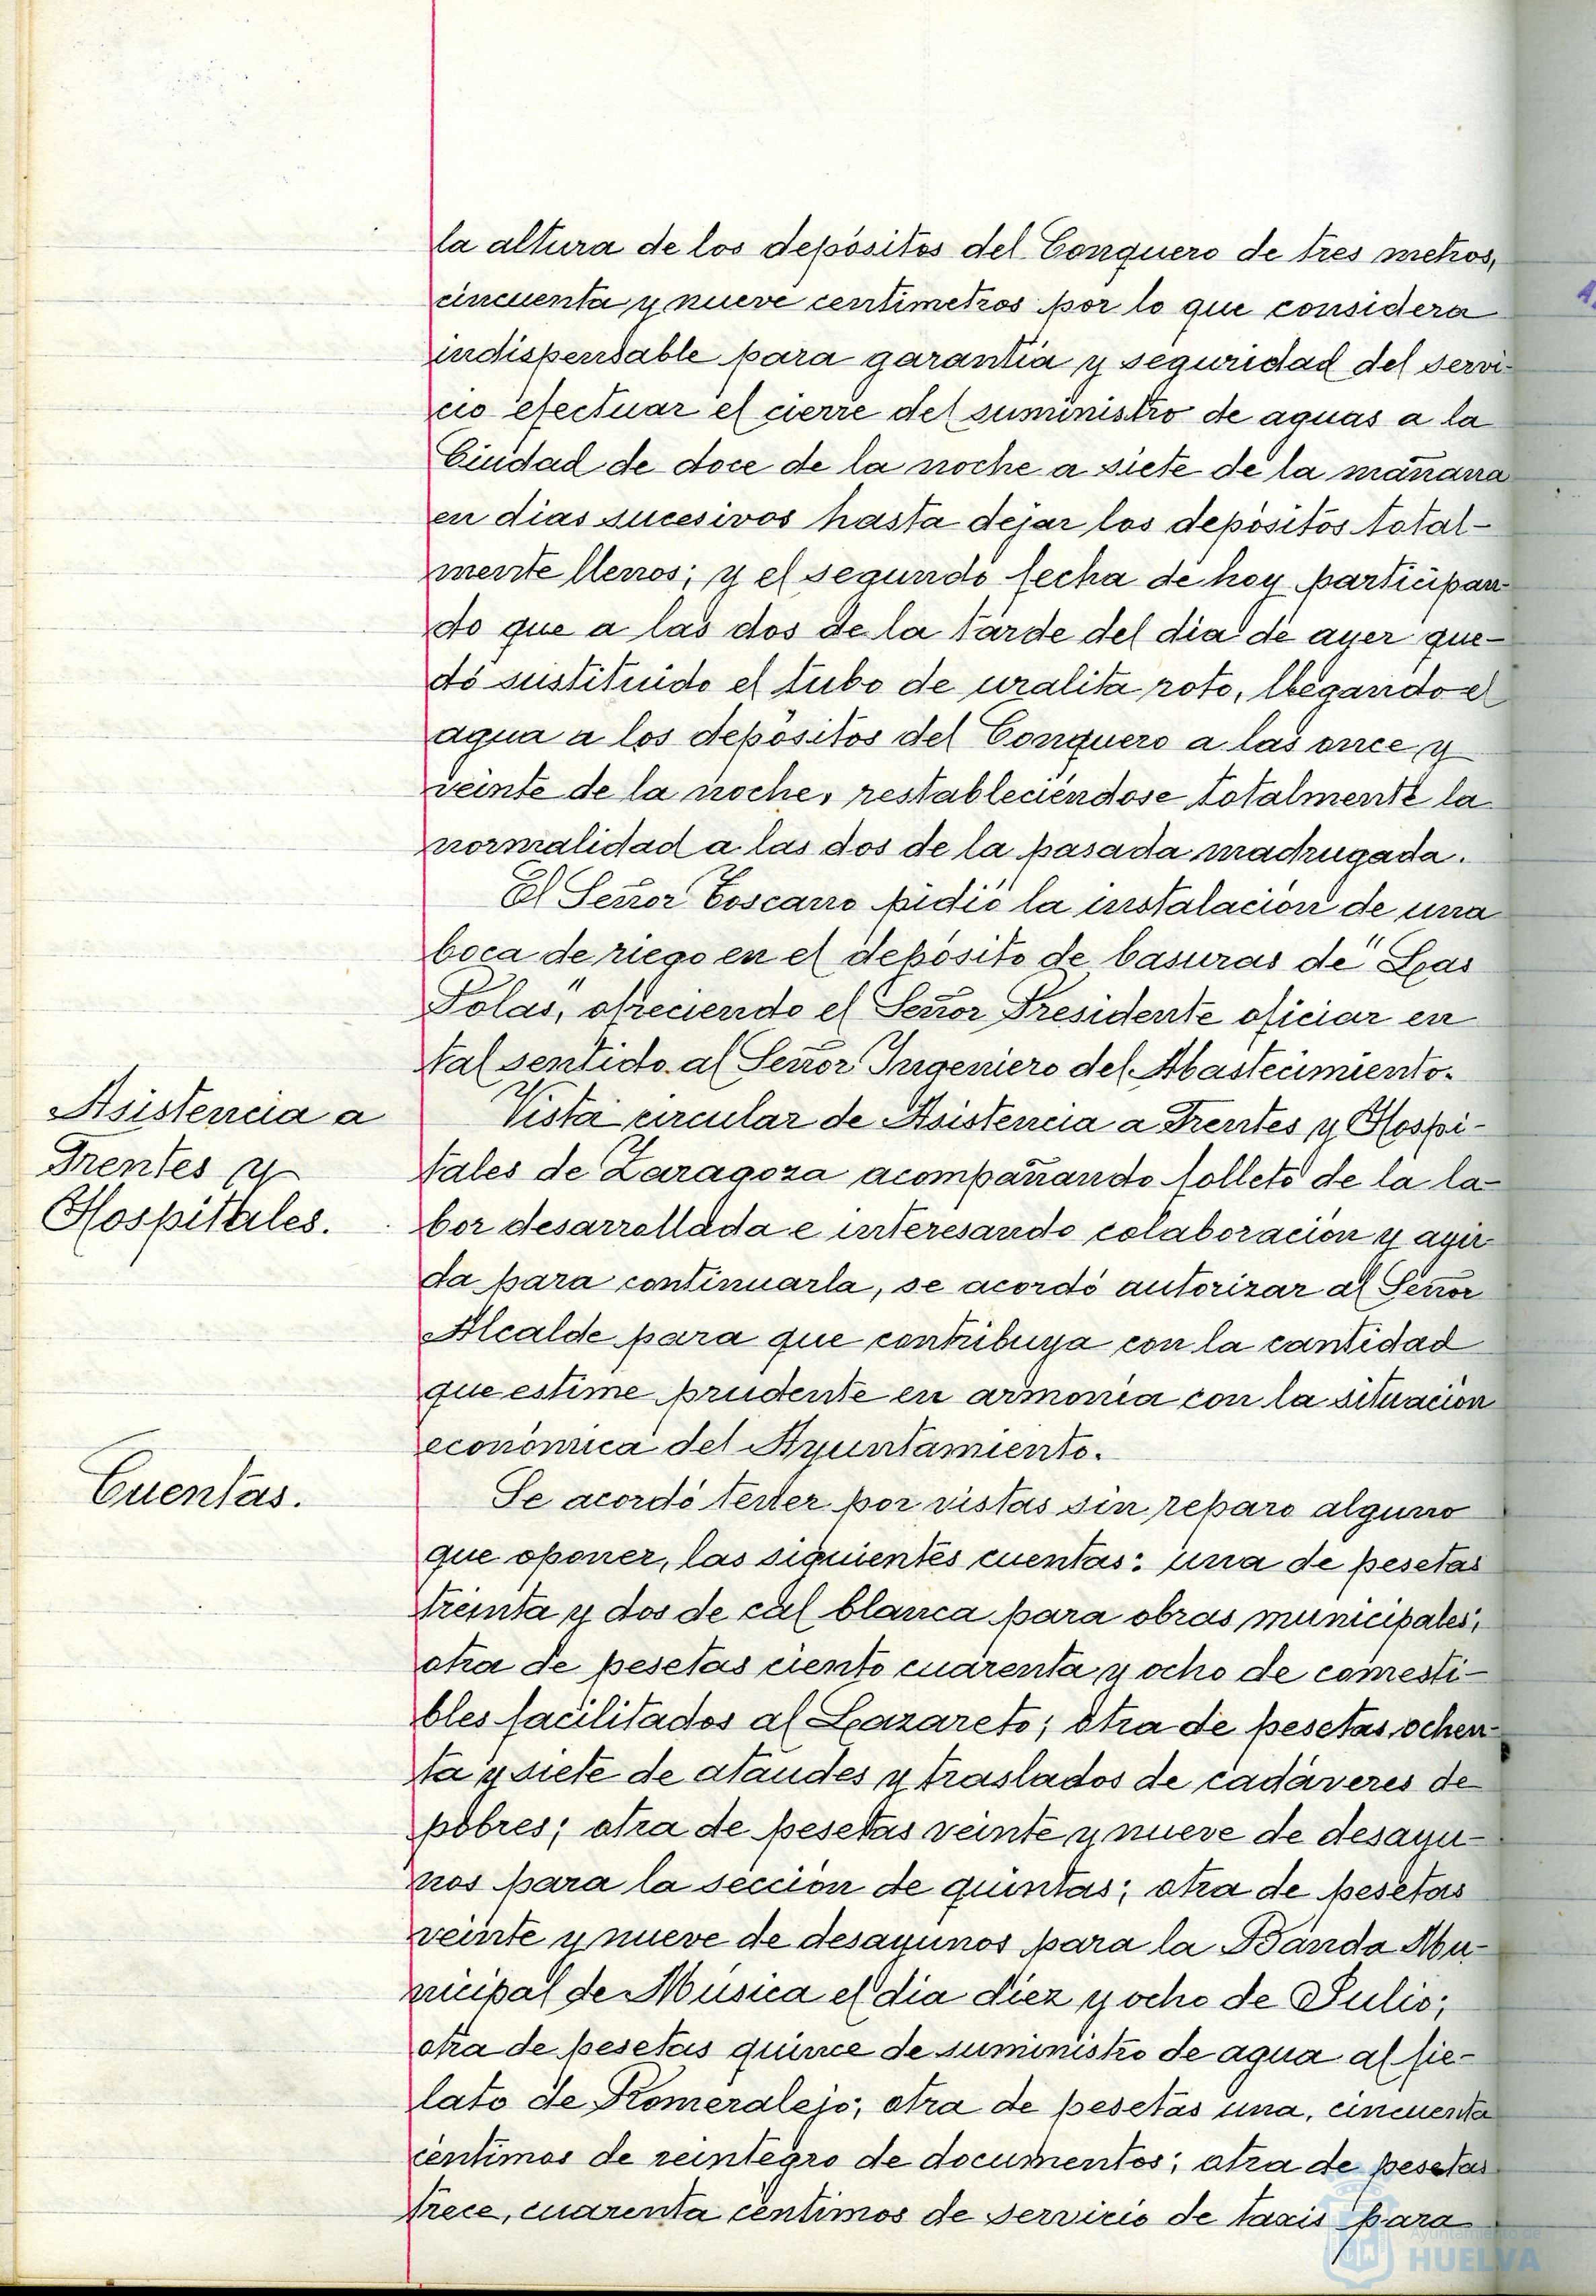 la altura de los depósitos del Conquero de tres metros,
cincuenta y nueve centimetros por lo que considera
indispensable para garantia y seguridad del servi-
cio efectuar el cierre del suministro de aguas a la
Ciudad de doce de la noche a siete de la mañana
en dias sucesivos hasta dejar los depósitos total-
mente llenos; y el segundo fecha de hoy participan
do que a las dos de la tarde del dia de ayer que-
dó sustituido el tubo de uralita roto, llegando el
agua a los depósitos del Conquero a las once y
veinte de la noche, restableciéndose totalmente la
normalidad a las dos de la pasada madrugada.
El Señor Toscano pidió la instalación de una
boca de riego en el depósito de basuras de "Las
Polas", ofreciendo el Señor Presidente oficiar en
tal sentido al Señor Ingeniero del Abastecimiento.
Asistencia a
Frentes y
Hospitales.
Vista circular de Asistencia a Frentes y Hospi-
tales de Zaragoza acompañando folleto de la la-
bor desarrollada e interesando colaboración y ayu
da para continuarla, se acordó autorizar al Señor
Alcalde para que contribuya con la cantidad
que estime prudente en armonia con la situación
económica del Ayuntamiento.
Cuentas.
Se acordó tener por vistas sin reparo alguno
que oponer, las siguientes cuentas: una de pesetas
treinta y dos de cal blanca para obras municipales;
otra de pesetas ciento cuarenta y ocho de comesti-
bles facilitados al Lazareto; otra de pesetas ochen-
ta y siete de ataudes y traslados de cadáveres de
pobres; otra de pesetas veinte y nueve de desayu-
nos para la sección de quintas; otra de pesetas
veinte y nueve de desayunos para la Banda Mu-
nicipal de Música el dia diez y ocho de Julio;
otra de pesetas quince de suministro de agua al fie-
lato de Romeralejo; otra de pesetas una, cincuenta
centimos de reintegro de documentos; otra de pesetas
trece, cuarenta centimos de servicio de taxis para
Ayuntamiento de
HUELVA